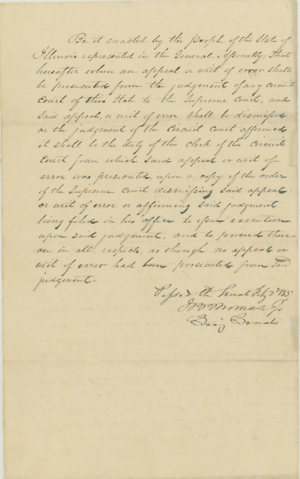 Be it enacted by the People of the State of
Illinois represented in the General Assembly, That
hereafter when an appeal or writ of error shall
be prosecuted from the judgement of any circuit
court of this State to the Supreme Court, and
said appeal or writ of error shall be dismissed
or the judgement of the Circuit Court affirmed
it shall be the duty of the clerk of the Circuit
Court from which said appeal or writ of
error was prosecuted, upon a copy of the order
of the Supreme Court dismissing said appeal
or writ of error or affirming said judgment
being filed in his office to issue execution
upon said judgement, and to proceed there
on in all respects as though no appeal or
writ of error had been prosecuted from said
judgement.
Passed the Senate Feby
Senate